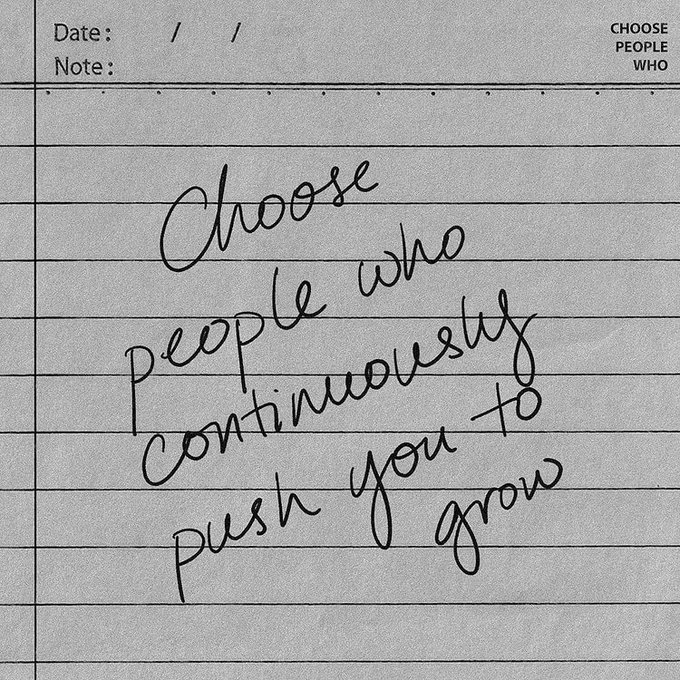 Date: / /
Note:
CHOOSE
PEOPLE
WHO
Choose
people who
continuously
push you to
grow